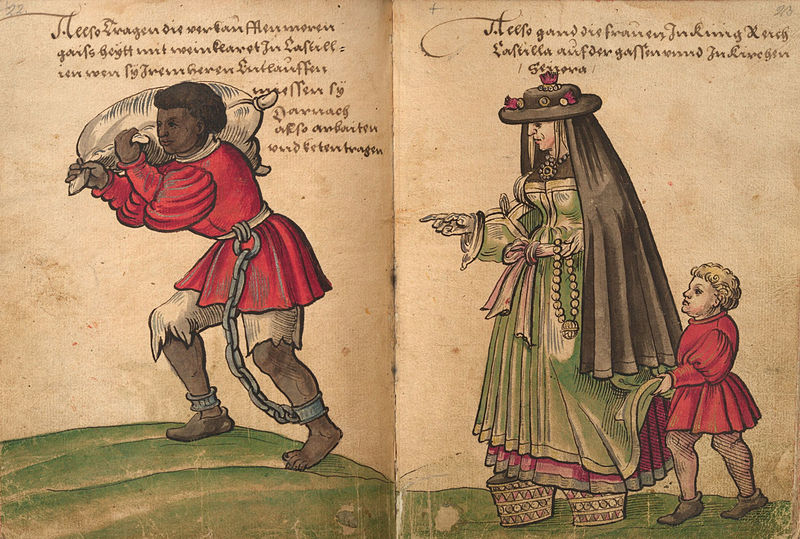 22
Allso Tragen die verkaufften moren
gaisheytt mit wein klaret In Castill=
ien wen sy Irem heren Entlauffen
muessen sy
Darnach
also arbaiten
vnd keten tragen
23
Allso gand die frauen In kunig Reich
Castilla auf der gassen vnnd In kirchen
Senora